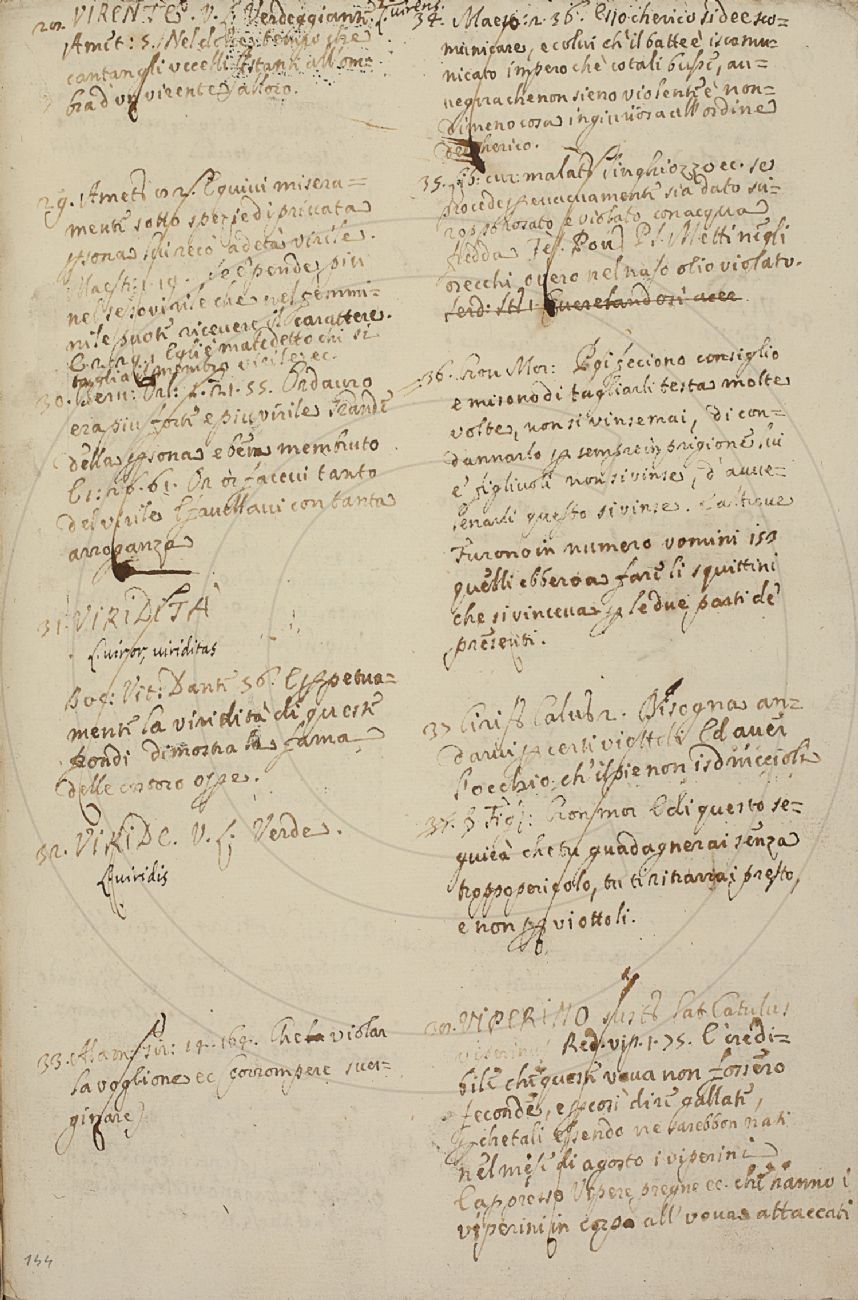 28. VIRENTE. V. L. Verdeggiante L. virens.
Amet: 5. Nel dolce tempo che
cantan gli uccelli stanti all'om=
bra d'un virente alloro.
29. Amet: 102. E quivi misera=
mente sotto spezie di privata
psona si recò ad età virile.
Maestr: 1. 19. Se e' pende piu
nel sesso virile che nel femmi=
nile puote ricevere il carattere.
E 2. 29. Egli è maledetto chi si
taglia il membro virile ec.
30. Bern: Orl: 1. 21. 55. Ordauro
era piu forte e piu virile grande
della psona e bene membruto
E 1: 26. 61. Or or facevi tanto
del virile E favellavi con tanta
arroganza
31. VIRIDITÀ
L. viror, viriditas
Boc: Vit: Dant: 56. E ppetua=
mente la viridità di queste
frondi dimostra la fama
delle costoro ope.
32. VIRIDE. V. L. Verde.
L. viridis
33. Alam: Gir: 19. 169. Che violar
la voglione ec (corrompere sver=
ginare)
34. Maestr: 2. 36. Esso cherico si dee sco=
municare, e colui ch'il batte è iscomu=
nicato impero che cotali busse, au=
vegnache non sieno violente è non=
dimeno cosa ingiuriosa all'ordine
del cherico.
35. Lib: cur: malatt: Singhiozzo ec. se
procede p evacuamente sia dato sci=
roppo rosato e violato con acqua
fredda Tes. Pov: P. S. Metti negli
orecchi, overo nel naso olio violato.
36. Cron Mor: Poi feciono consiglio
e misono di tagliarli testa molte
volte, non si vinse mai, di con=
dannarlo p sempre in prigione lui
e figliuoli non si vinse, d'avve=
lenarli questo si vinse.
Furono in numero uomini 150
quelli ebbero a fare li squittini
che si vinceva p le due parti de
presenti.
37 Ciriff Calv: 2. Bisogna an=
darvi p certi viottoli Ed aver
l'occhio ch'il pie non isdruccioli
37. § Fig: Cron mor E di questo se=
guirà che tu guadagnerai senza
troppo pericolo, tu ti ritrarrai presto,
e non p viottoli.
38. VIPERINO sust: Lat Catulus
viperinus Red. vip. 1. 75. È credi=
bile che queste uova non fossero
feconde, e p così dire gallate,
pche tali essendo ne sarebbon nati
nel mese di agosto i viperini
E appresso Vipere pregne ec. che hanno i
viperini in corpo all'uova attaccati
144